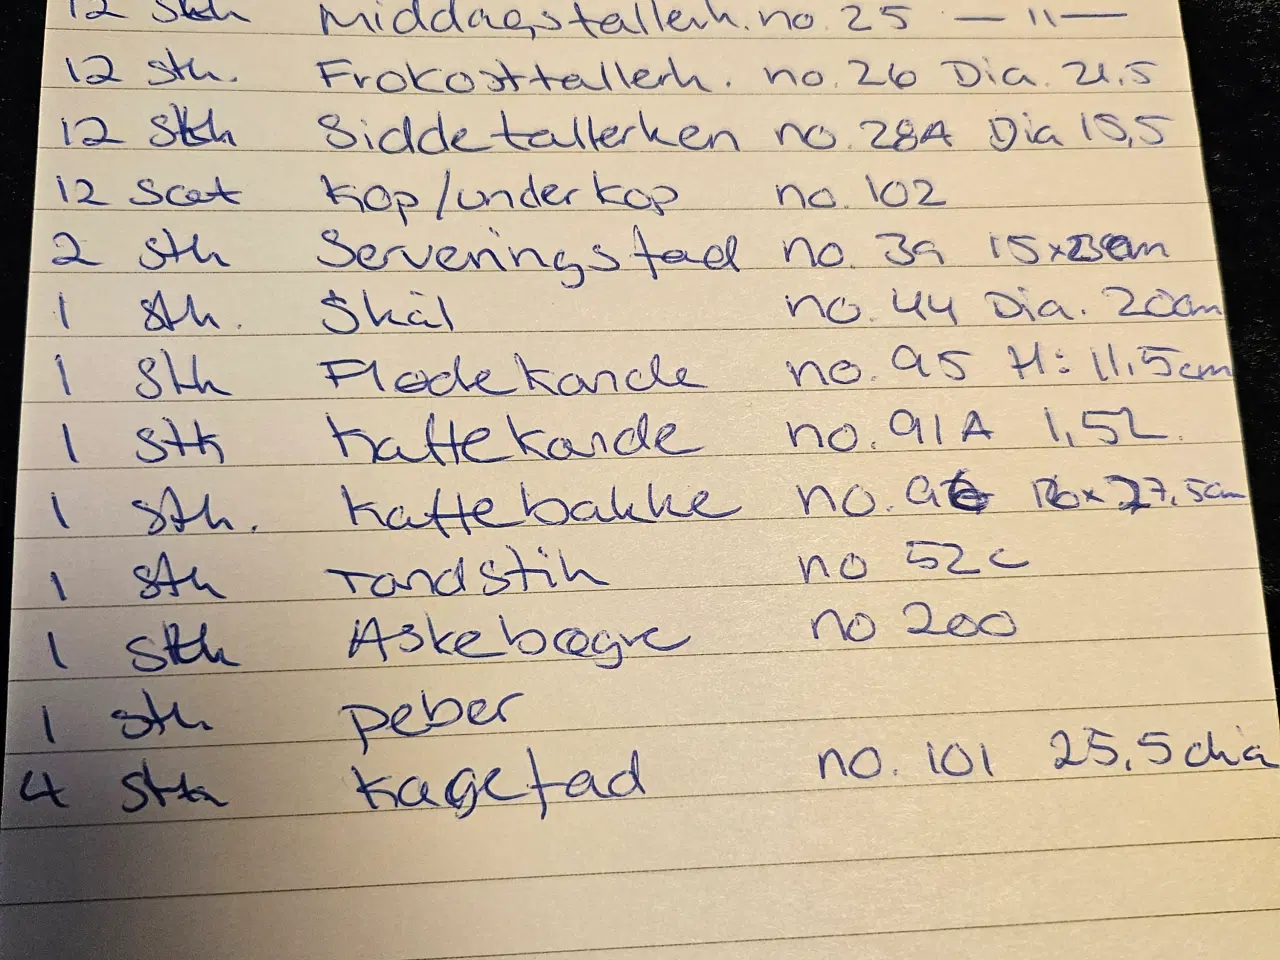 12 stk Middagstallerk. no. 25 — 11 —
12 stk. Frokosttallerk. no. 26 Dia. 21,5
12 stk Siddetallerken no. 28A Dia 15,5
12 Sæt Kop/underkop no. 102
2 stk Serveringsfad no. 39 15x23cm
1 stk. Skål no. 44 Dia. 20cm
1 stk Flødekande no. 95 H: 11,5cm
1 stk Kaffekande no. 91A 1,5L.
1 stk. Kaffebakke no. 96 x 27,5cm
1 stk Tandstik no 52c
1 stk Askebægre no 200
1 stk peber
4 stk Kagefad no. 101 25,5 dia